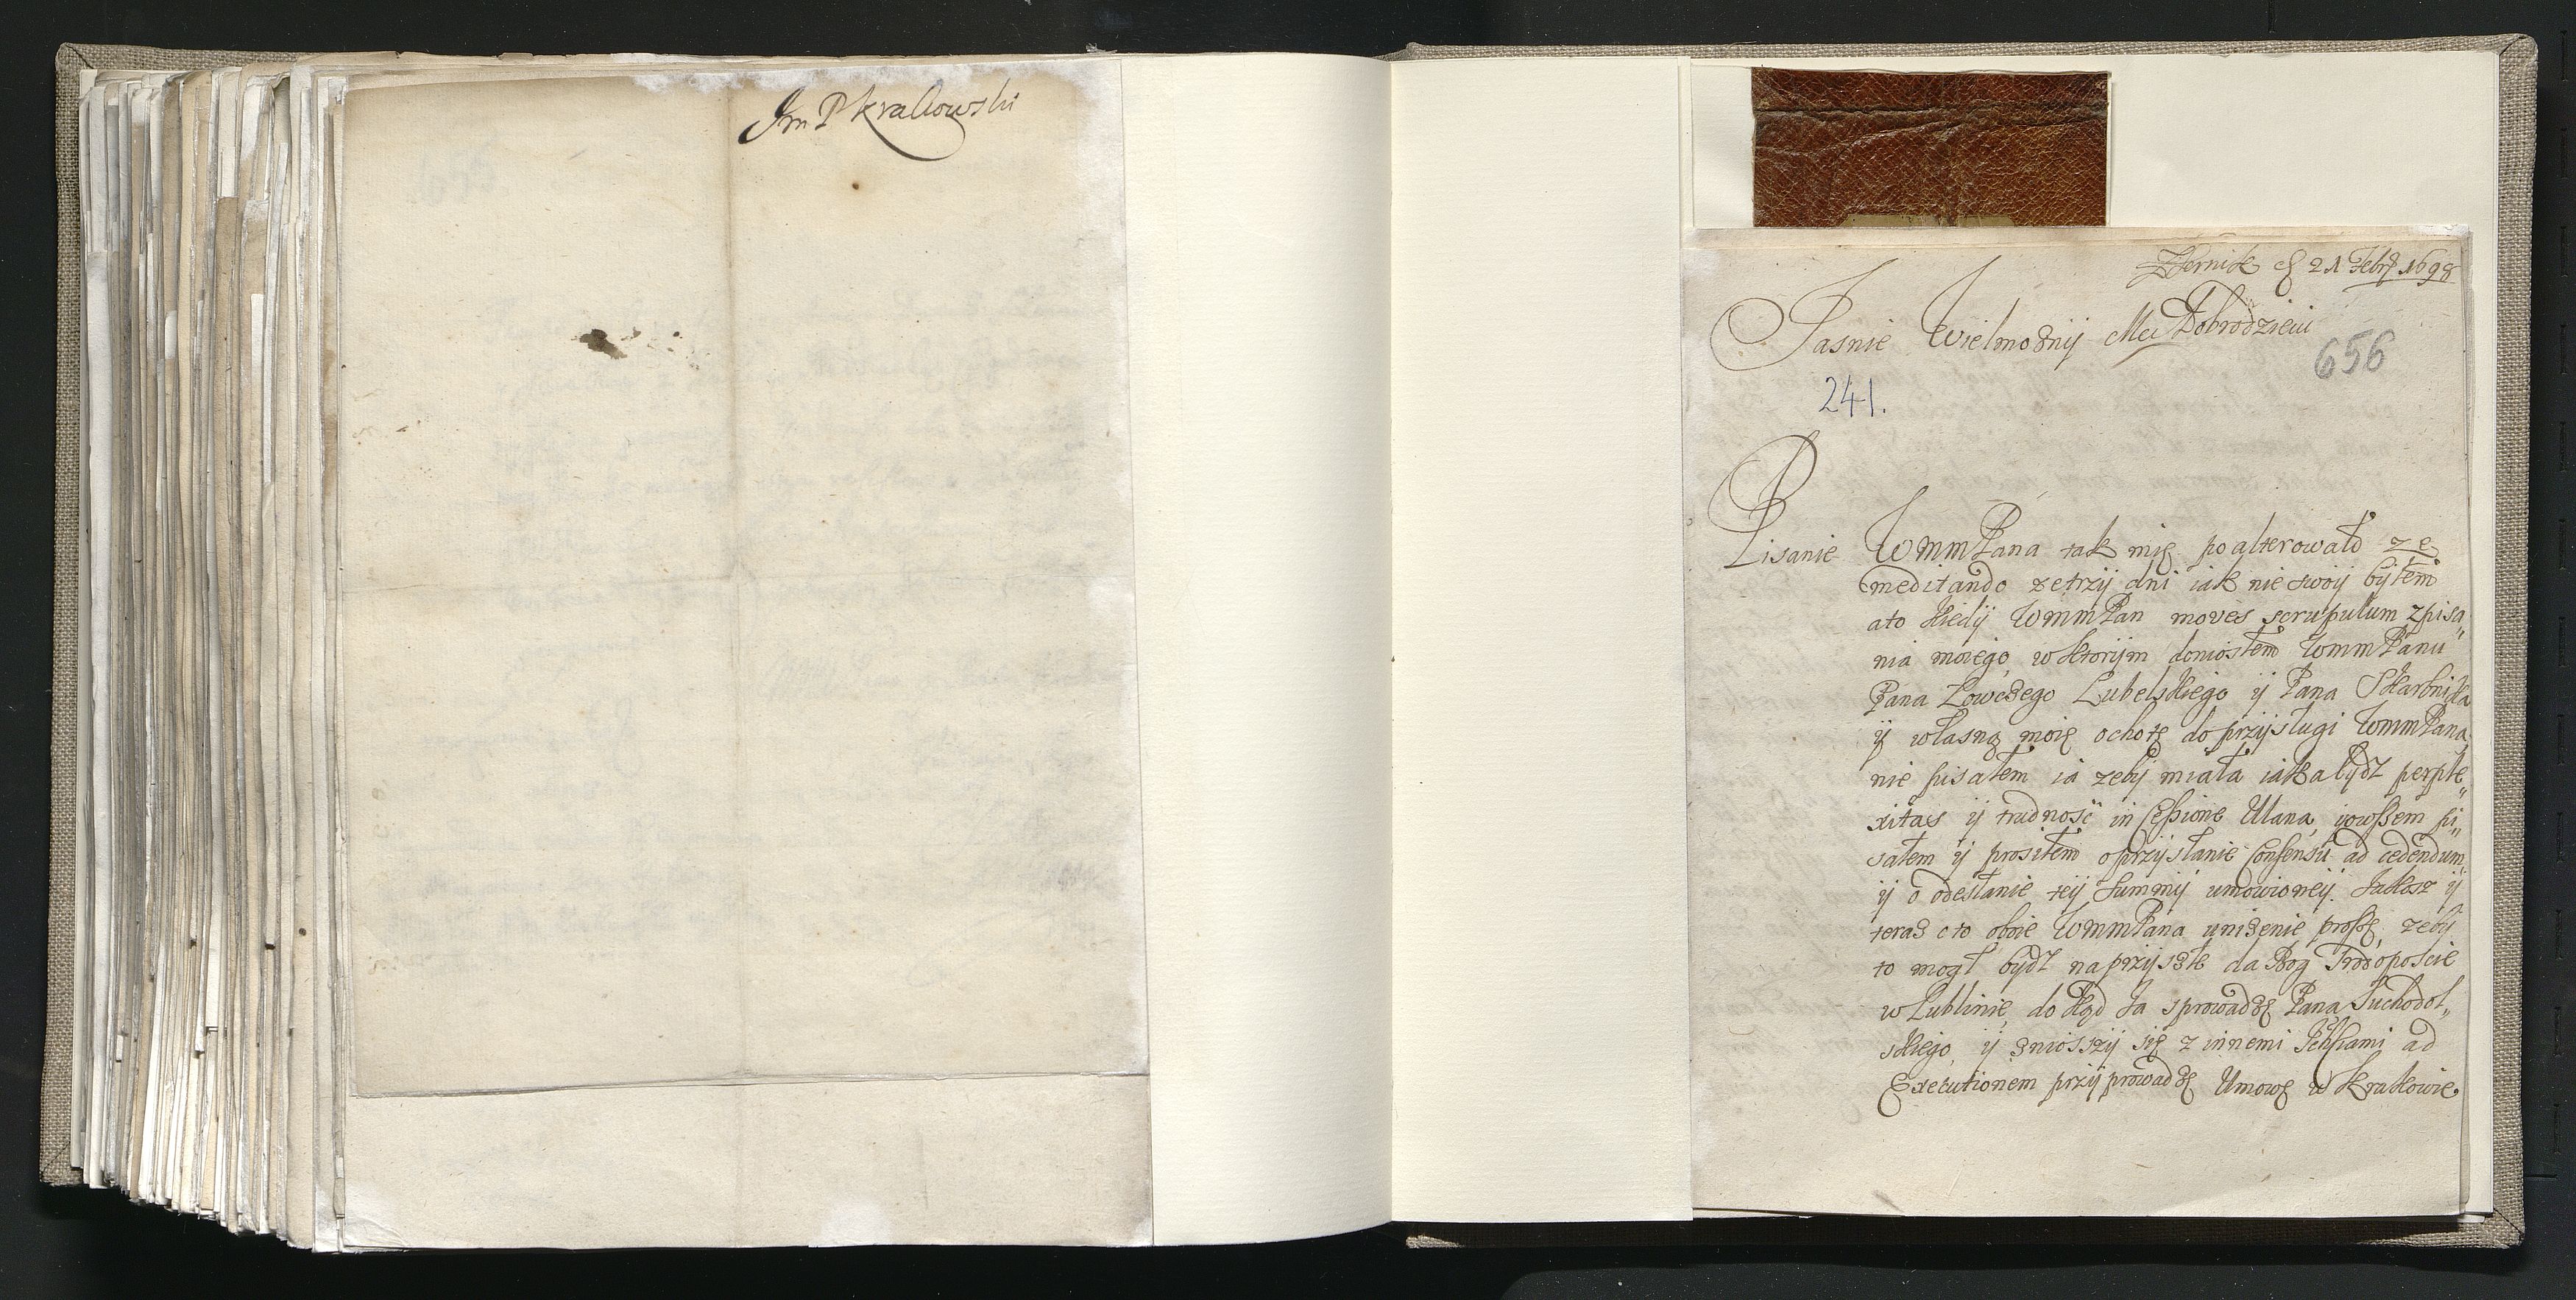 Jm P Krakowski
Zernik d 21 Febr 1698
Jasnie Wielmożnÿ Mci Dobrodzieiu
656
241.
Pisanie WMMPana tak mię poalterowało ze
meditando ze trzÿ dni iak nie swoÿ byłem
ato kiedÿ WMMPan moves scrupulum zpisa„
nia moiego, w ktorÿm doniosłem WMMPanu
Pana Łowczego Lubelskiego ÿ Pana Skarbnika
ÿ własną moię ochotę do przÿsługi WMMPana
nie pisałem ia zebÿ miała iaka bÿdz perple„
xitas ÿ trudnosć in Cessione Ulana, ÿowszem pi„
sałem ÿ prosiłem o przÿsłanie Consensu ad cedendum
ÿ o odesłanie teÿ Summÿ umowioneÿ. Jakosz ÿ
teraz o to oboie WMMPana unizenie proszę, zebÿ
to mogł bÿdz na przÿszłe da Bog Srodoposcie
w Lublinie, dokąd Ja sprowadzę Pana Suchodol„
skiego, ÿ zniosszÿ się z innemi Ichsciami ad
Executionem przÿprowadzę Umowę w Krakowie